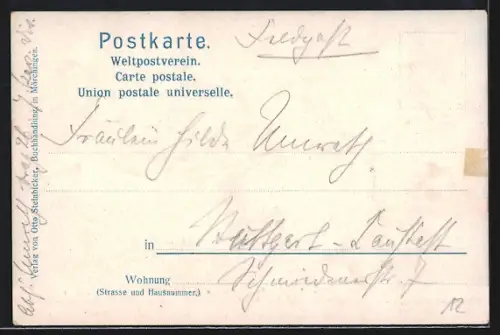 Postkarte.
Weltpostverein.
Carte postale.
Union postale universelle.
Feldpost
Fräulein Hilde Unrath
in Stuttgart - Cannstatt
Wohnung
(Strasse und Hausnummer.)
Schmidenerstr. 7
12
Verlag von Otto Stelnbicker, Buchhandlung in Mörchingen.
Abs. Unrath